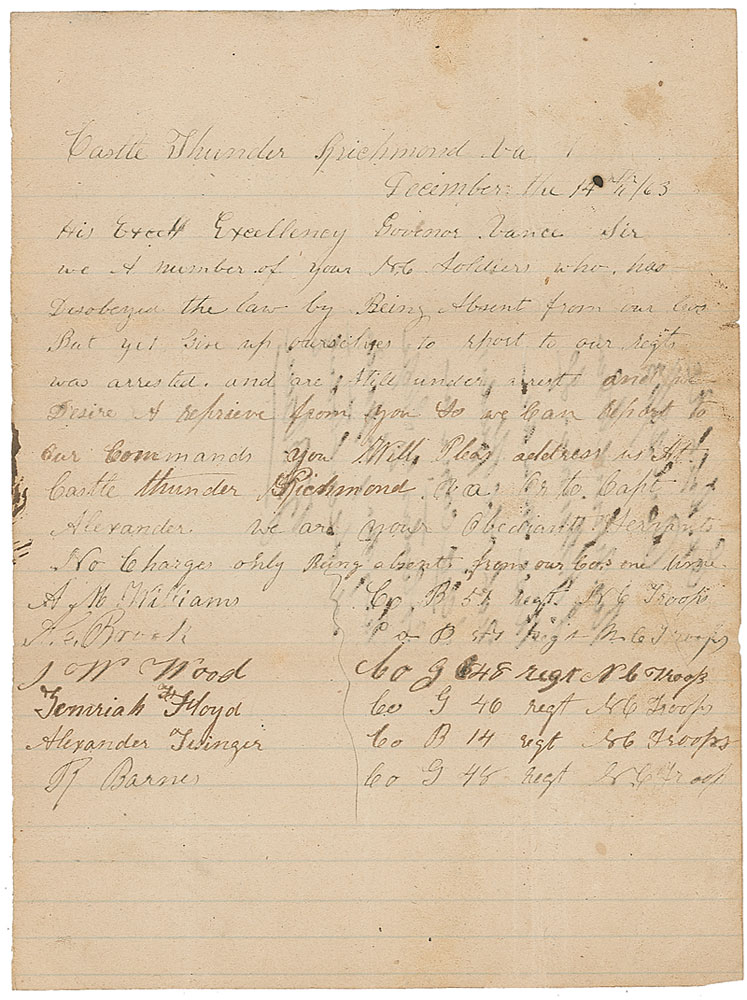 Castle Thunder Richmond Va
December the 14th /63
His Excell Excellency Govenor Vance Sir
we A number of your NC Soldiers who has
Disobeyed the law by Being Absent from our Cos
But yet Give up ourselves to report to our regts
was arrested. and are still under arrest and we
Desire A reprieve from you So we Can report to
our Commands you Will Pleas address us At
Castle thunder Richmond Va Cr to Capt
Alexander We are your Obediant Servants
No Charges only Being absent from our Cos one time
A M Williams Co B 51 regt. N C Troops
Brook Co B regt N C Troops
J W Wood Co G 48 regt N C Troops
Jemriah Floyd Co G 46 regt N C Troops
Alexander Co B 14 regt N C Troops
R Barnes Co G 48 regt N C Troop